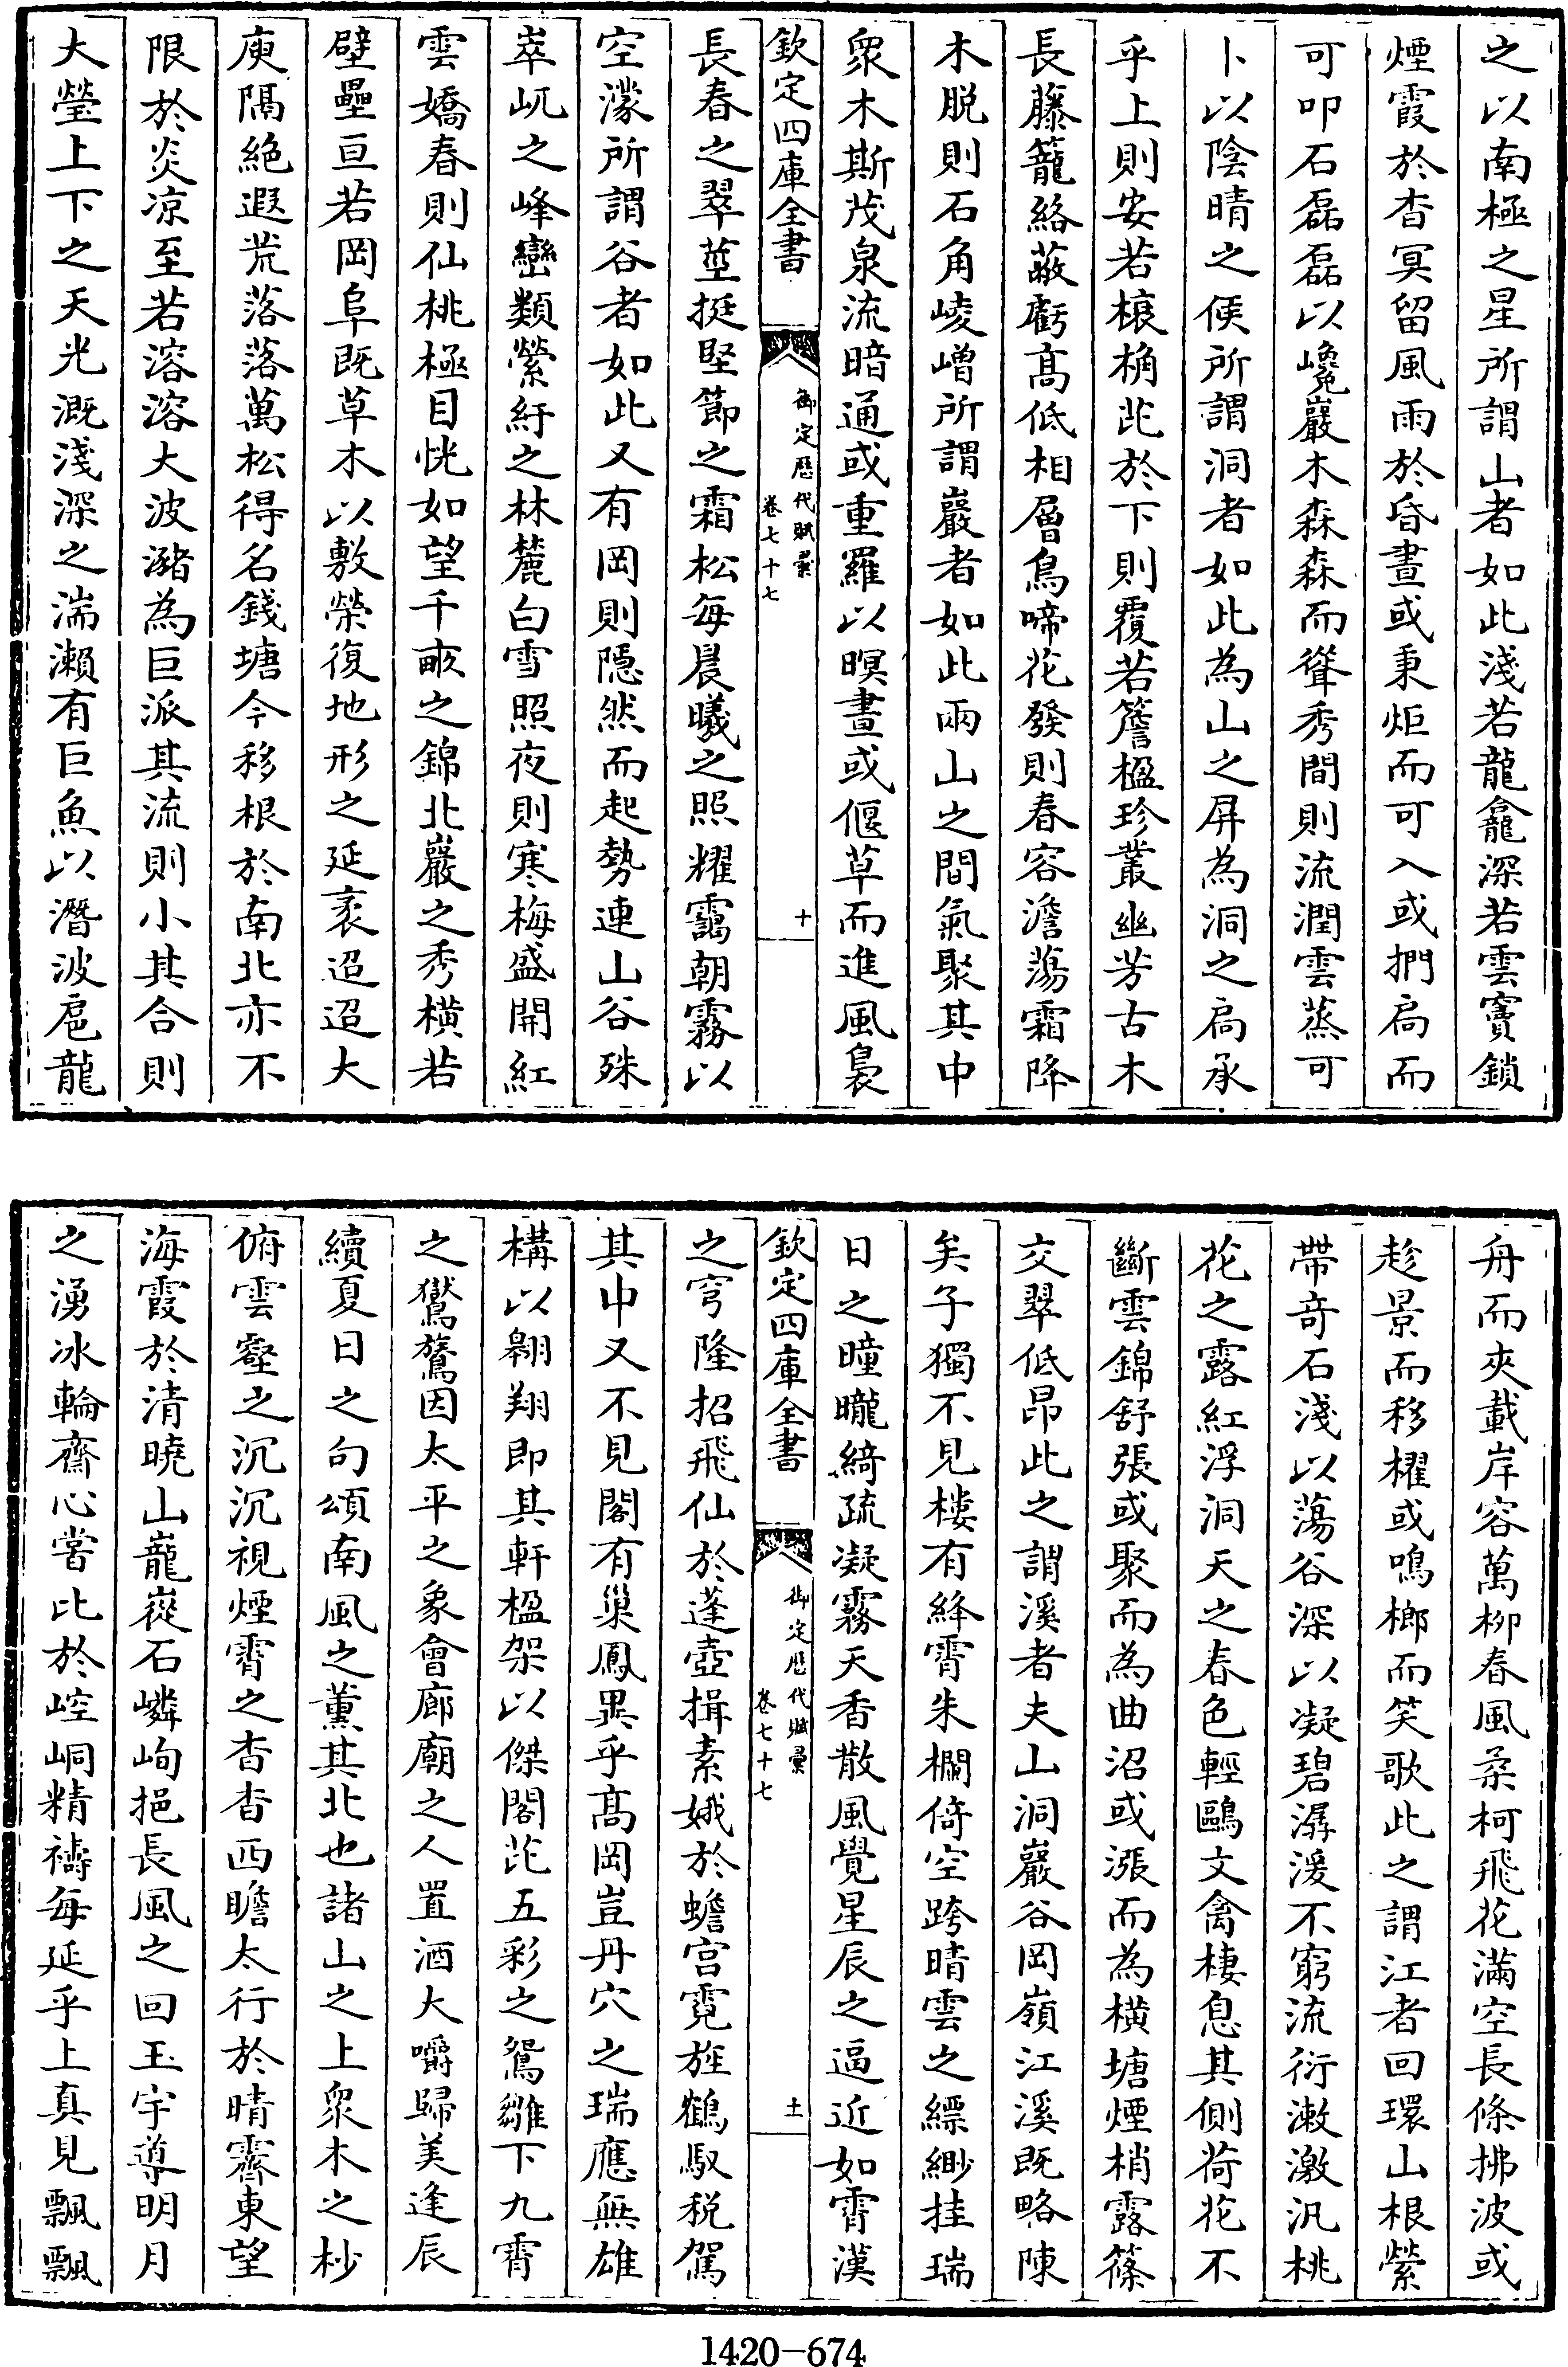 之以南極之星所謂山者如此淺若龍龕深若雲竇鎖
煙霞於杳冥留風雨於昏晝或秉炬而可入或捫扃而
可叩石磊磊以巉巖木森森而聳秀間則流潤雲蒸可
卜以陰晴之候所謂洞者如此為山之屏為洞之扃承
乎上則安若榱桷庇於下則覆若簷楹珍叢幽芳古木
長藤籠絡蔽虧髙低相層鳥啼花發則春容澹蕩霜降
木脱則石角崚嶒所謂巖者如此兩山之間氣聚其中
衆木斯茂泉流暗通或重羅以暝晝或偃草而進風裊
欽定四庫全書
御定歴代賦彙
卷七十七
十
長春之翠莖挺堅節之霜松每晨曦之照耀靄朝霧以
空濛所謂谷者如此又有岡則隱然而起勢連山谷殊
崒屼之峰巒類縈紆之林麓白雪照夜則寒梅盛開紅
雲嬌春則仙桃極目恍如望千畝之錦北巖之秀橫若
壁壘亘若岡阜既草木以敷榮復地形之延袤迢迢大
庾隔絶遐荒落落萬松得名錢塘今移根於南北亦不
限於炎凉至若溶溶大波瀦為巨派其流則小其合則
大瑩上下之天光溉淺深之湍瀨有巨魚以潛波扈龍
舟而夾載岸容萬柳春風柔柯飛花滿空長條拂波或
趁景而移櫂或鳴榔而笑歌此之謂江者回環山根縈
帶奇石淺以蕩谷深以凝碧潺湲不窮流衍漱激汎桃
花之露紅浮洞天之春色輕鷗文禽棲息其側荷花不
斷雲錦舒張或聚而為曲沼或漲而為橫塘煙梢露篠
交翠低昂此之謂溪者夫山洞巖谷岡嶺江溪既略陳
矣子獨不見樓有絳霄朱欄倚空跨晴雲之縹緲挂瑞
日之曈曨綺疏凝霧天香散風覺星辰之逼近如霄漢
欽定四庫全書
御定歴代賦彙
卷七十七
十一
之穹隆招飛仙於蓬壺揖素娥於蟾宫霓旌鶴馭税駕
其中又不見閣有巢鳳異乎髙岡豈丹穴之瑞應無雄
構以翱翔即其軒楹架以傑閣芘五彩之鴛雛下九霄
之鸑鷟因太平之象會廊廟之人置酒大嚼歸美逢辰
續夏日之句頌南風之薫其北也諸山之上衆木之杪
俯雲壑之沉沉視煙霄之杳杳西瞻太行於晴霽東望
海霞於清曉山巃嵸石嶙峋挹長風之回玉宇導明月
之湧冰輪齋心嘗比於崆峒精禱每延乎上真見飄飄
1420-674